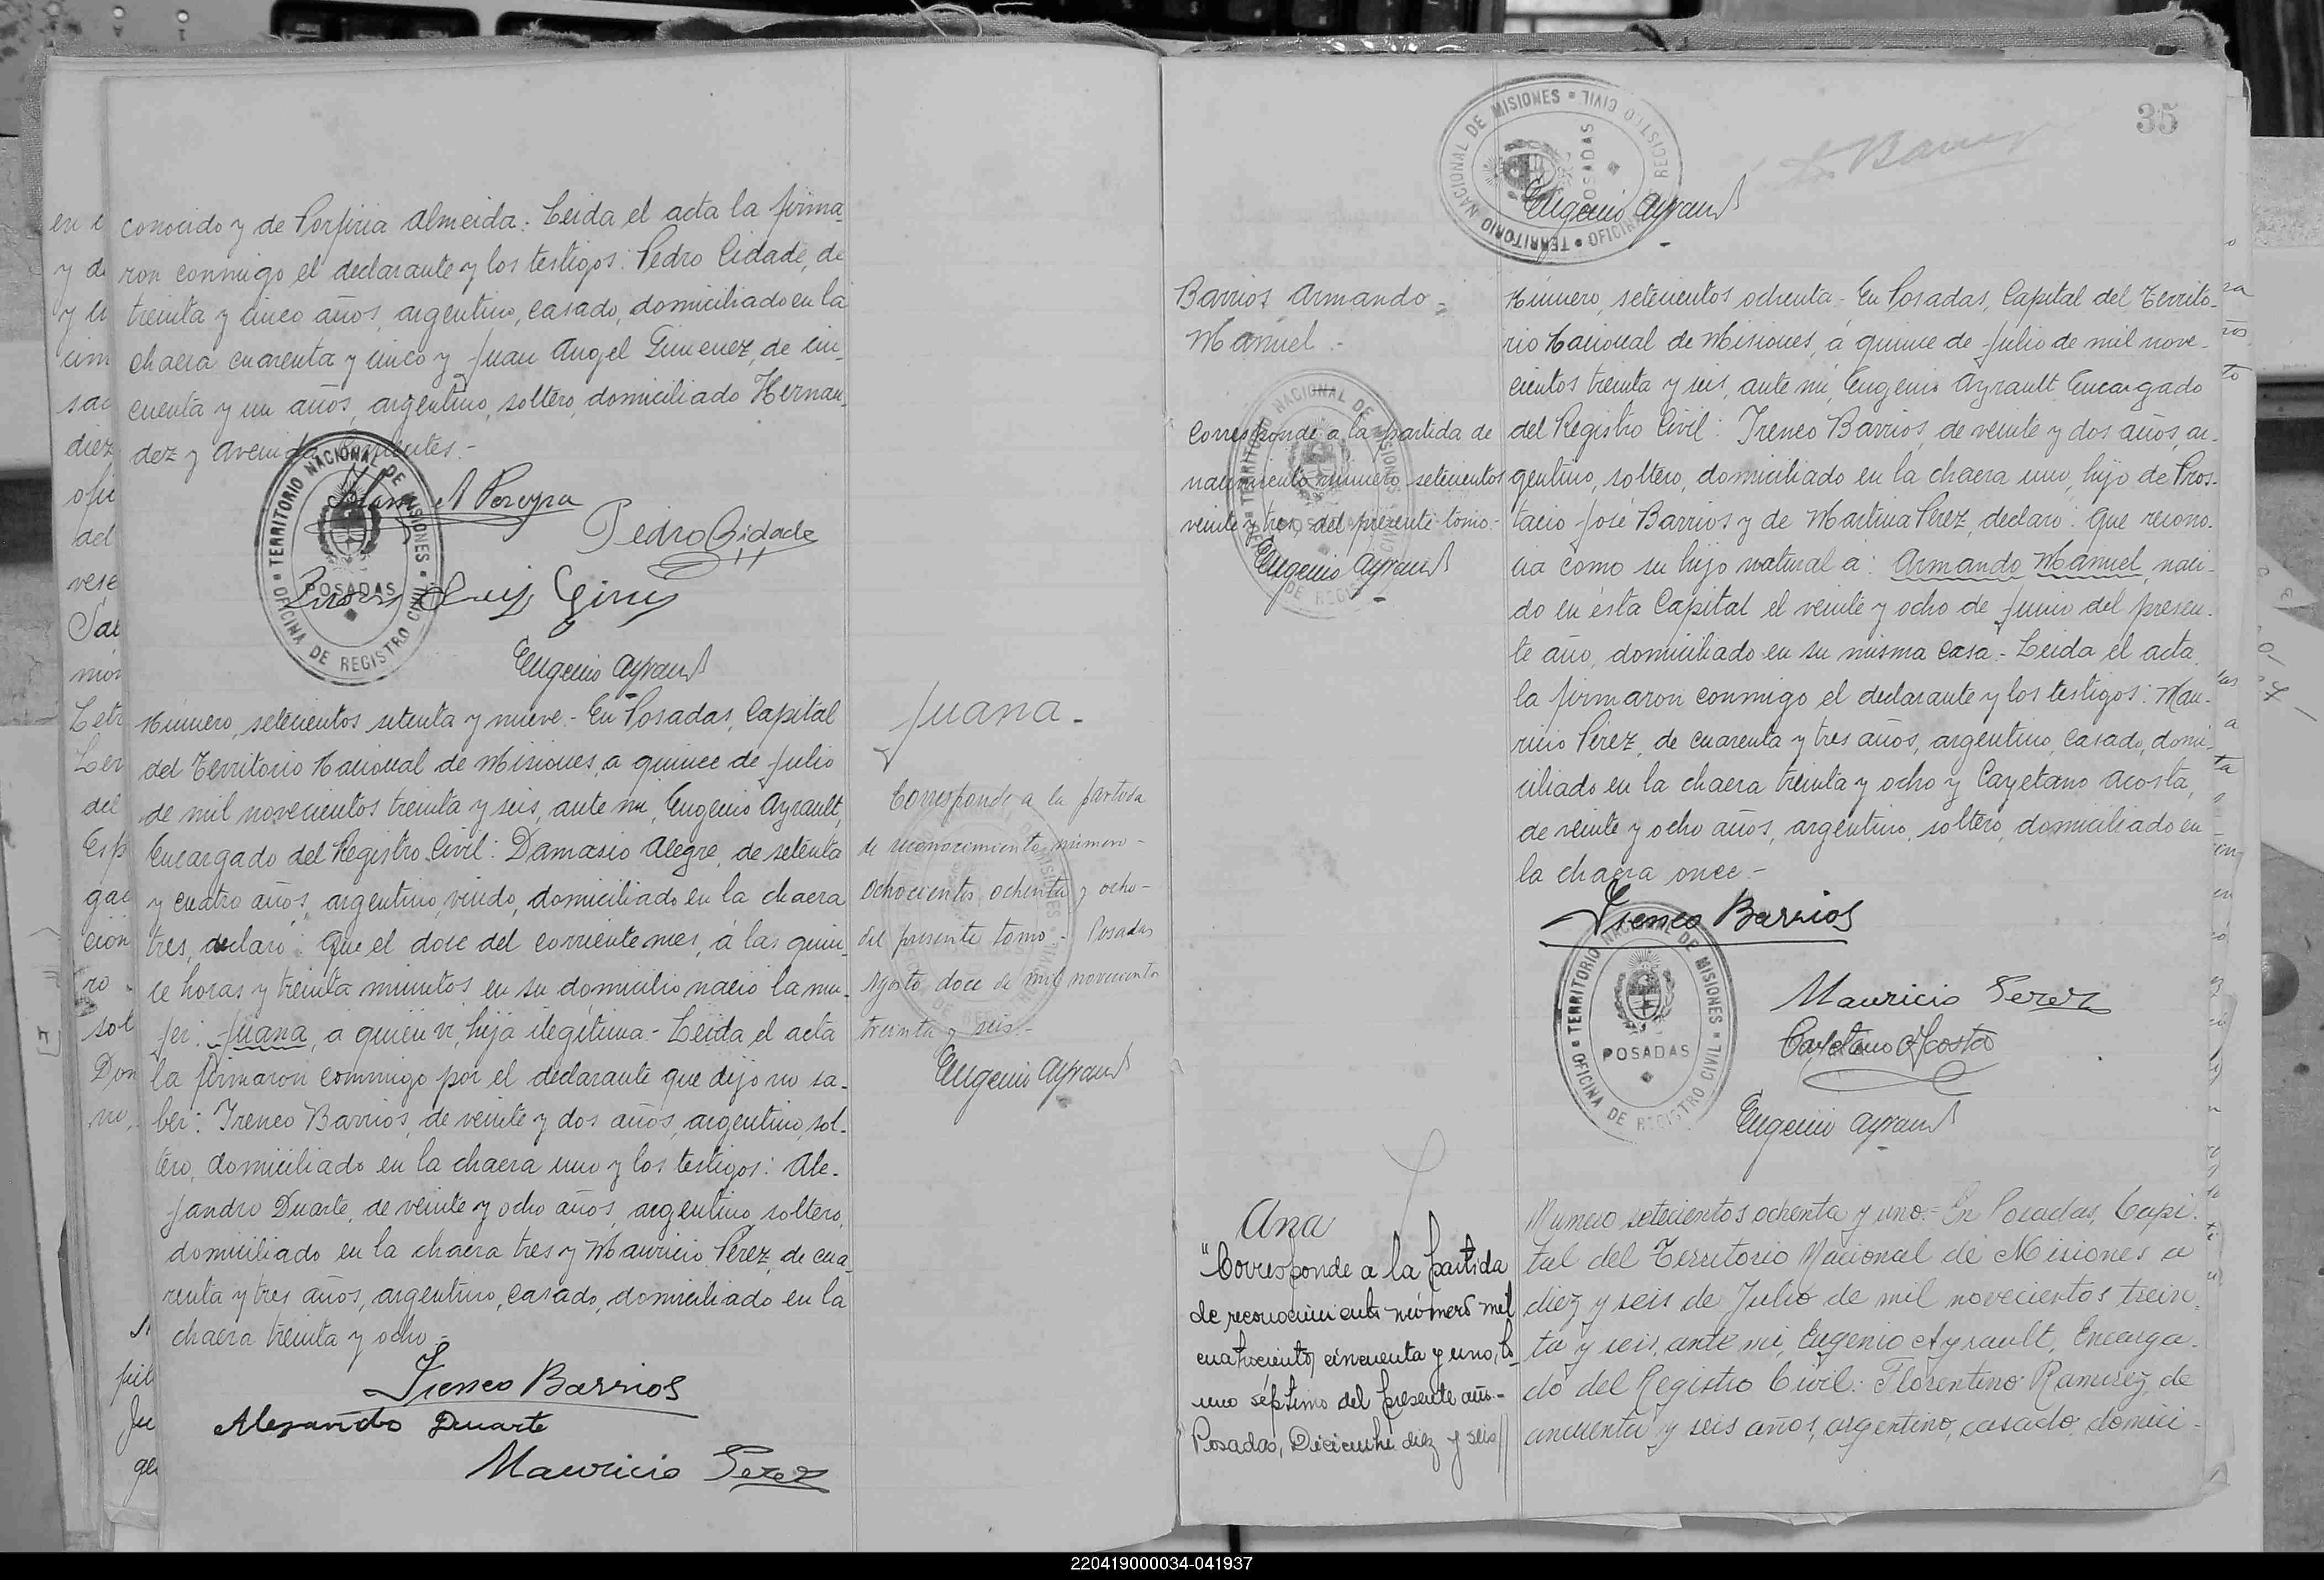 conocido y de Porfiria Almeida. Leida el acta la firma-
ron conmigo el declarante y los testigos: Pedro Cidade, de
treinta y cinco años, argentino, casado, domiciliado en la
chacra cuarenta y cinco y Juan Angel Gimenez, de cin-
cuenta y un años, argentino, soltero, domiciliado Hernan-
dez y Avenida
Pereyra
Pedro Cidade
TERRITORIO NACIONAL DE MISIONES
POSADAS
OFICINA DE REGISTRO CIVIL
Eugenio Ayrault
Número, setecientos setenta y nueve.- En Posadas, Capital
del Territorio Nacional de Misiones, a quince de Julio
de mil novecientos treinta y seis, ante mi, Eugenio Ayrault,
Encargado del Registro Civil: Damasio Alegre, de setenta
y cuatro años, argentino, viudo, domiciliado en la chacra
tres, declaró: Que el doce del corriente mes, á las quin-
ce horas y treinta minutos en su domicilio nació la mu-
jer: Juana, a quien vi, hija ilegítima.- Leida el acta
la firmaron conmigo por el declarante que dijo no sa-
ber: Ireneo Barrios, de veinte y dos años, argentino, sol-
tero, domiciliado en la chacra uno y los testigos: Ale-
jandro Duarte, de veinte y ocho años, argentino soltero,
domiciliado en la chacra tres y Mauricio Perez, de cua-
renta y tres años, argentino, casado, domiciliado en la
chacra treinta y ocho.-
Ireneo Barrios
Alejandro Duarte
Mauricio Perez
Juana.-
Corresponde a la partida
de reconocimiento número-
ochocientos ochenta y ocho-
del presente tomo.- Posadas
Agosto doce de mil novecientos
treinta y seis.-
Eugenio Ayrault
35
TERRITORIO NACIONAL DE MISIONES
POSADAS
OFICINA REGISTRO CIVIL
Eugenio Ayrault
Barrios Armando
Manuel.-
Corresponde a la partida de
nacimiento número setecientos
veinte y tres, del presente tomo.-
Eugenio Ayrault
Número, setecientos ochenta.- En Posadas, Capital del Territo-
rio Nacional de Misiones, á quince de Julio de mil nove-
cientos treinta y seis, ante mi, Eugenio Ayrault Encargado
del Registro Civil: Ireneo Barrios, de veinte y dos años, ar-
gentino, soltero, domiciliado en la chacra uno, hijo de Pros-
tacio José Barrios y de Martina Perez, declaró: Que recono-
cia como su hijo natural a: Armando Manuel, naci-
do en ésta Capital el veinte y ocho de Junio del presen-
te año, domiciliado en su misma casa.- Leida el acta
la firmaron conmigo el declarante y los testigos: Mau-
ricio Perez, de cuarenta y tres años, argentino, casado, domi-
ciliado en la chacra treinta y ocho y Cayetano Acosta,
de veinte y ocho años, argentino, soltero, domiciliado en
la chacra once.-
Ireneo Barrios
TERRITORIO NACIONAL DE MISIONES
POSADAS
OFICINA DE REGISTRO CIVIL
Mauricio Perez
Cayetano Acosta
Eugenio Ayrault
Ana
"Corresponde a la partida
de reconocimiento número mil
cuatrocientos cincuenta y uno, to-
mo séptimo del presente año.-
Posadas, Diciembre diez y seis
Numero setecientos ochenta y uno.- En Posadas, Capi-
tal del Territorio Nacional de Misiones a
diez y seis de Julio de mil novecientos trein-
ta y seis, ante mi, Eugenio Ayrault, Encarga-
do del Registro Civil: Florentino Ramirez, de
cincuenta y seis años, argentino, casado, domici-
220419000034-041937